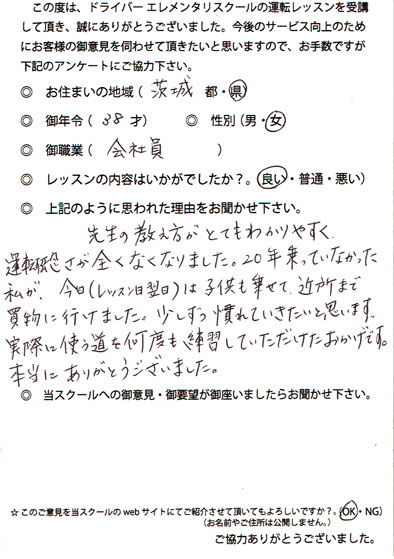 この度は、ドライバー エレメンタリスクールの運転レッスンを受講
して頂き、誠にありがとうございました。今後のサービス向上のため
にお客様の御意見を伺わせて頂きたいと思いますので、お手数ですが
下記のアンケートにご協力下さい。
◎ お住まいの地域（ 茨城 都・県）
◎ 御年令（ 38 才） ◎ 性別（男・女）
◎ 御職業（ 会社員 ）
◎ レッスンの内容はいかがでしたか？。（良い・普通・悪い）
◎ 上記のように思われた理由をお聞かせ下さい。
先生の教え方がとてもわかりやすく、
運転 さが全くなくなりました。20年乗っていなかった
私が、今日（レッスン日翌日）は子供も乗せて、近所まで
買物に行けました。少しずつ慣れていきたいと思います。
実際に使う道を何度も練習していただけたおかげです。
本当にありがとうございました。
◎ 当スクールへの御意見・御要望が御座いましたらお聞かせ下さい。
☆このご意見を当スクールのwebサイトにてご紹介させて頂いてもよろしいですか？。（OK・NG）
（お名前やご住所は公開しません。）
ご協力ありがとうございました。